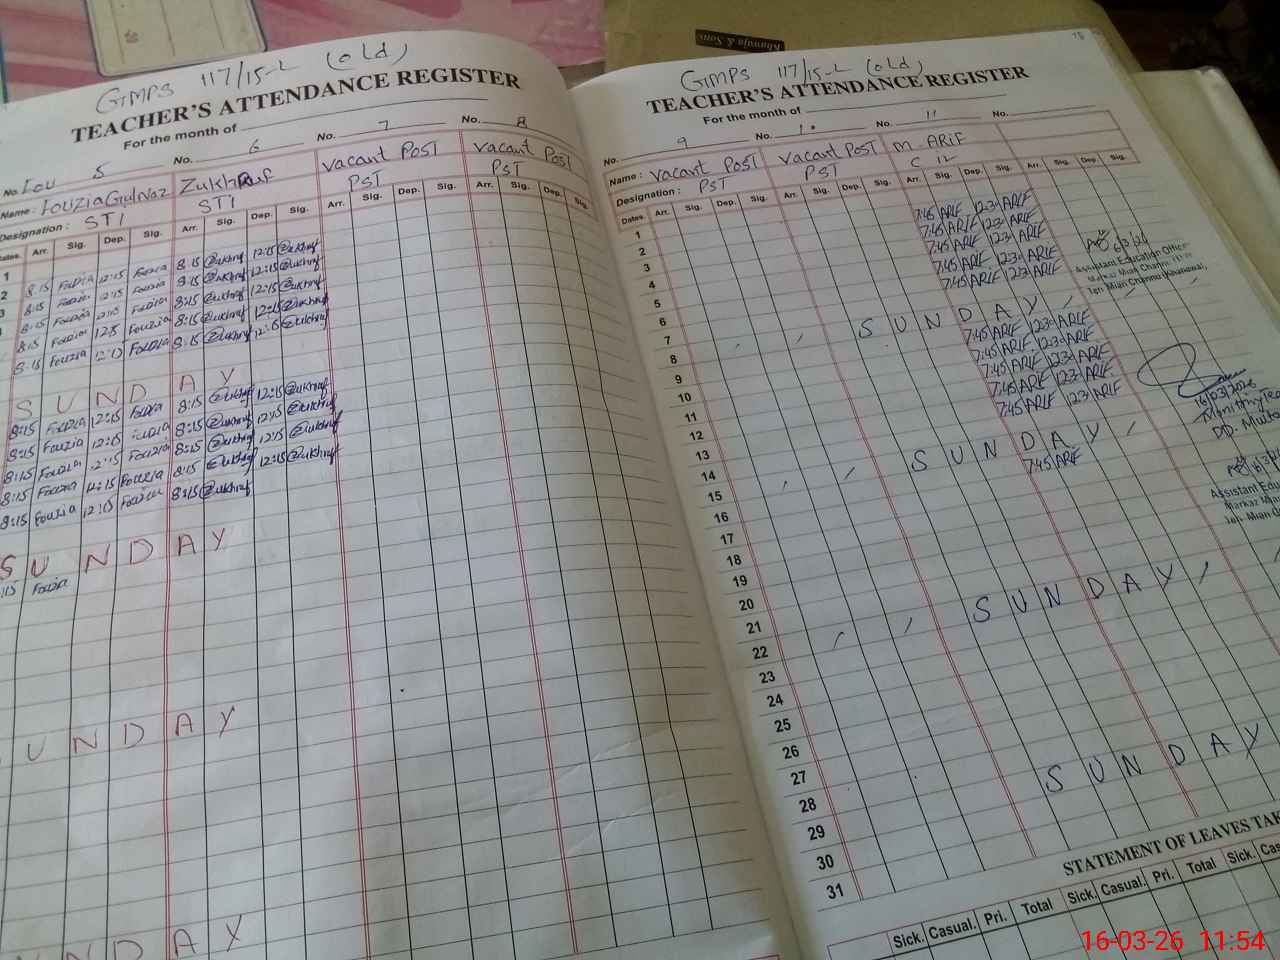 Khawaja & Sons
GMPS 117/15-L (old)
TEACHER'S ATTENDANCE REGISTER
For the month of
No. 5 No. 6 No. 7 No. 8
Name: Fouzia Gulnaz Zukhruf vacant POST vacant POST
Designation: STI STI PST PST
Dates. Arr. Sig. Dep. Sig. Arr. Sig. Dep. Sig. Arr. Sig. Dep. Sig. Arr. Sig. Dep. Sig.
1 8:15 Fouzia 12:15 Fouzia 8:15 Zukhruf 12:15 Zukhruf
2 8:15 Fouzia 12:15 Fouzia 8:15 Zukhruf 12:15 Zukhruf
3 8:15 Fouzia 12:15 Fouzia 8:15 Zukhruf 12:15 Zukhruf
8:15 Fouzia 12:15 Fouzia 8:15 Zukhruf 12:15 Zukhruf
8:15 Fouzia 12:15 Fouzia 8:15 Zukhruf 12:15 Zukhruf
SUNDAY
8:15 Fouzia 12:15 Fouzia 8:15 Zukhruf 12:15 Zukhruf
8:15 Fouzia 12:15 Fouzia 8:15 Zukhruf 12:15 Zukhruf
8:15 Fouzia 12:15 Fouzia 8:15 Zukhruf 12:15 Zukhruf
8:15 Fouzia 12:15 Fouzia 8:15 Zukhruf 12:15 Zukhruf
8:15 Fouzia 12:15 Fouzia 8:15 Zukhruf
SUNDAY
Fouzia
UNDAY
NDAY
GMPS 117/15-L (old)
TEACHER'S ATTENDANCE REGISTER
For the month of
No. 9 No. 10 No. 11 No.
Name: vacant POST vacant POST M. ARIF
Designation: PST PST C IV
Dates. Arr. Sig. Dep. Sig. Arr. Sig. Dep. Sig. Arr. Sig. Dep. Sig. Arr. Sig. Dep. Sig.
1 7:45 ARIF 12:30 ARIF
2 7:45 ARIF 12:30 ARIF
3 7:45 ARIF 12:30 ARIF
4 7:45 ARIF 12:30 ARIF
5 7:45 ARIF 12:30 ARIF
6
7 SUNDAY
8 7:45 ARIF 12:30 ARIF
9 7:45 ARIF 12:30 ARIF
10 7:45 ARIF 12:30 ARIF
11 7:45 ARIF 12:30 ARIF
12 7:45 ARIF 12:30 ARIF
13
14 SUNDAY
15 7:45 ARIF
16
17
18
19
20
21 SUNDAY
22
23
24
25
26
27
28 SUNDAY
29
30
31
6/3/26
Assistant Education Officer
16/03/2026
Assistant Edu
Markaz Mian
STATEMENT OF LEAVES TAK
Sick. Casual. Pri. Total Sick. Casual. Pri. Total Sick. Cas
16-03-26 11:54